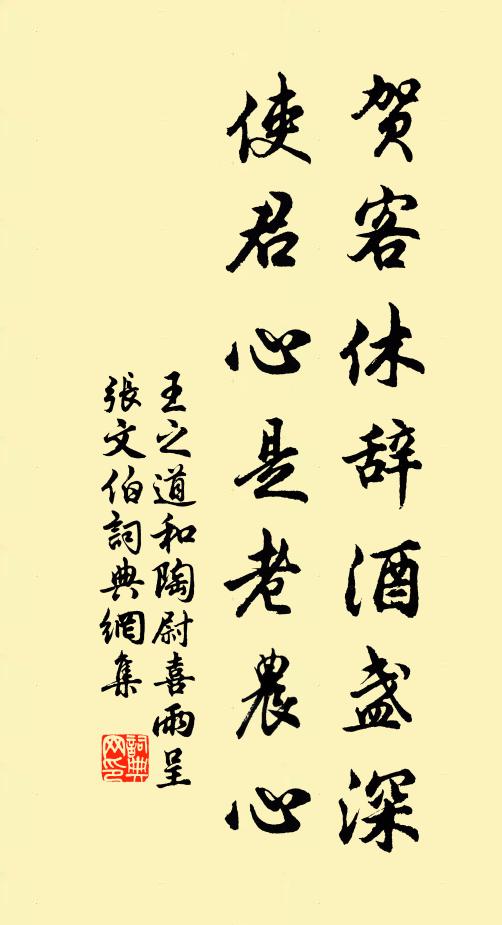 贺客休辞酒盏深
使君心是老農心
王之道和陶尉喜雨呈
張文伯詞典網集
詞典
网印